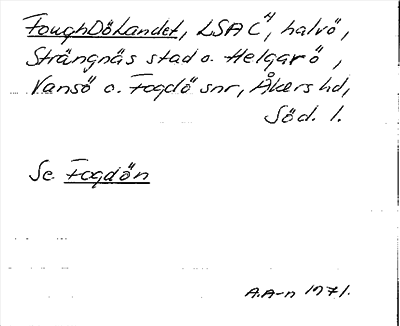 FoughDöLandet, LSA C4, halvö,
Strängnäs stad o. Helgarö,
Vansö o. Fogdö snr, Åkers hd,
Söd. l.
Se Fogdön
A.A-n 1971.